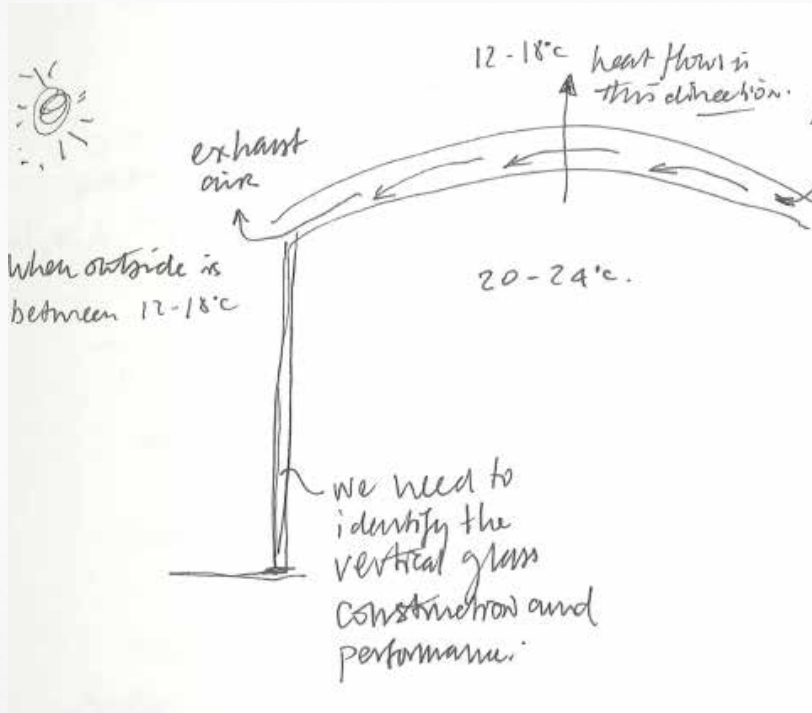 12-18°c
heat flows in
this direction.
exhaust
air
When outside is
between 12-18°c
20-24°c.
we need to
identify the
vertical glass
construction and
performance.